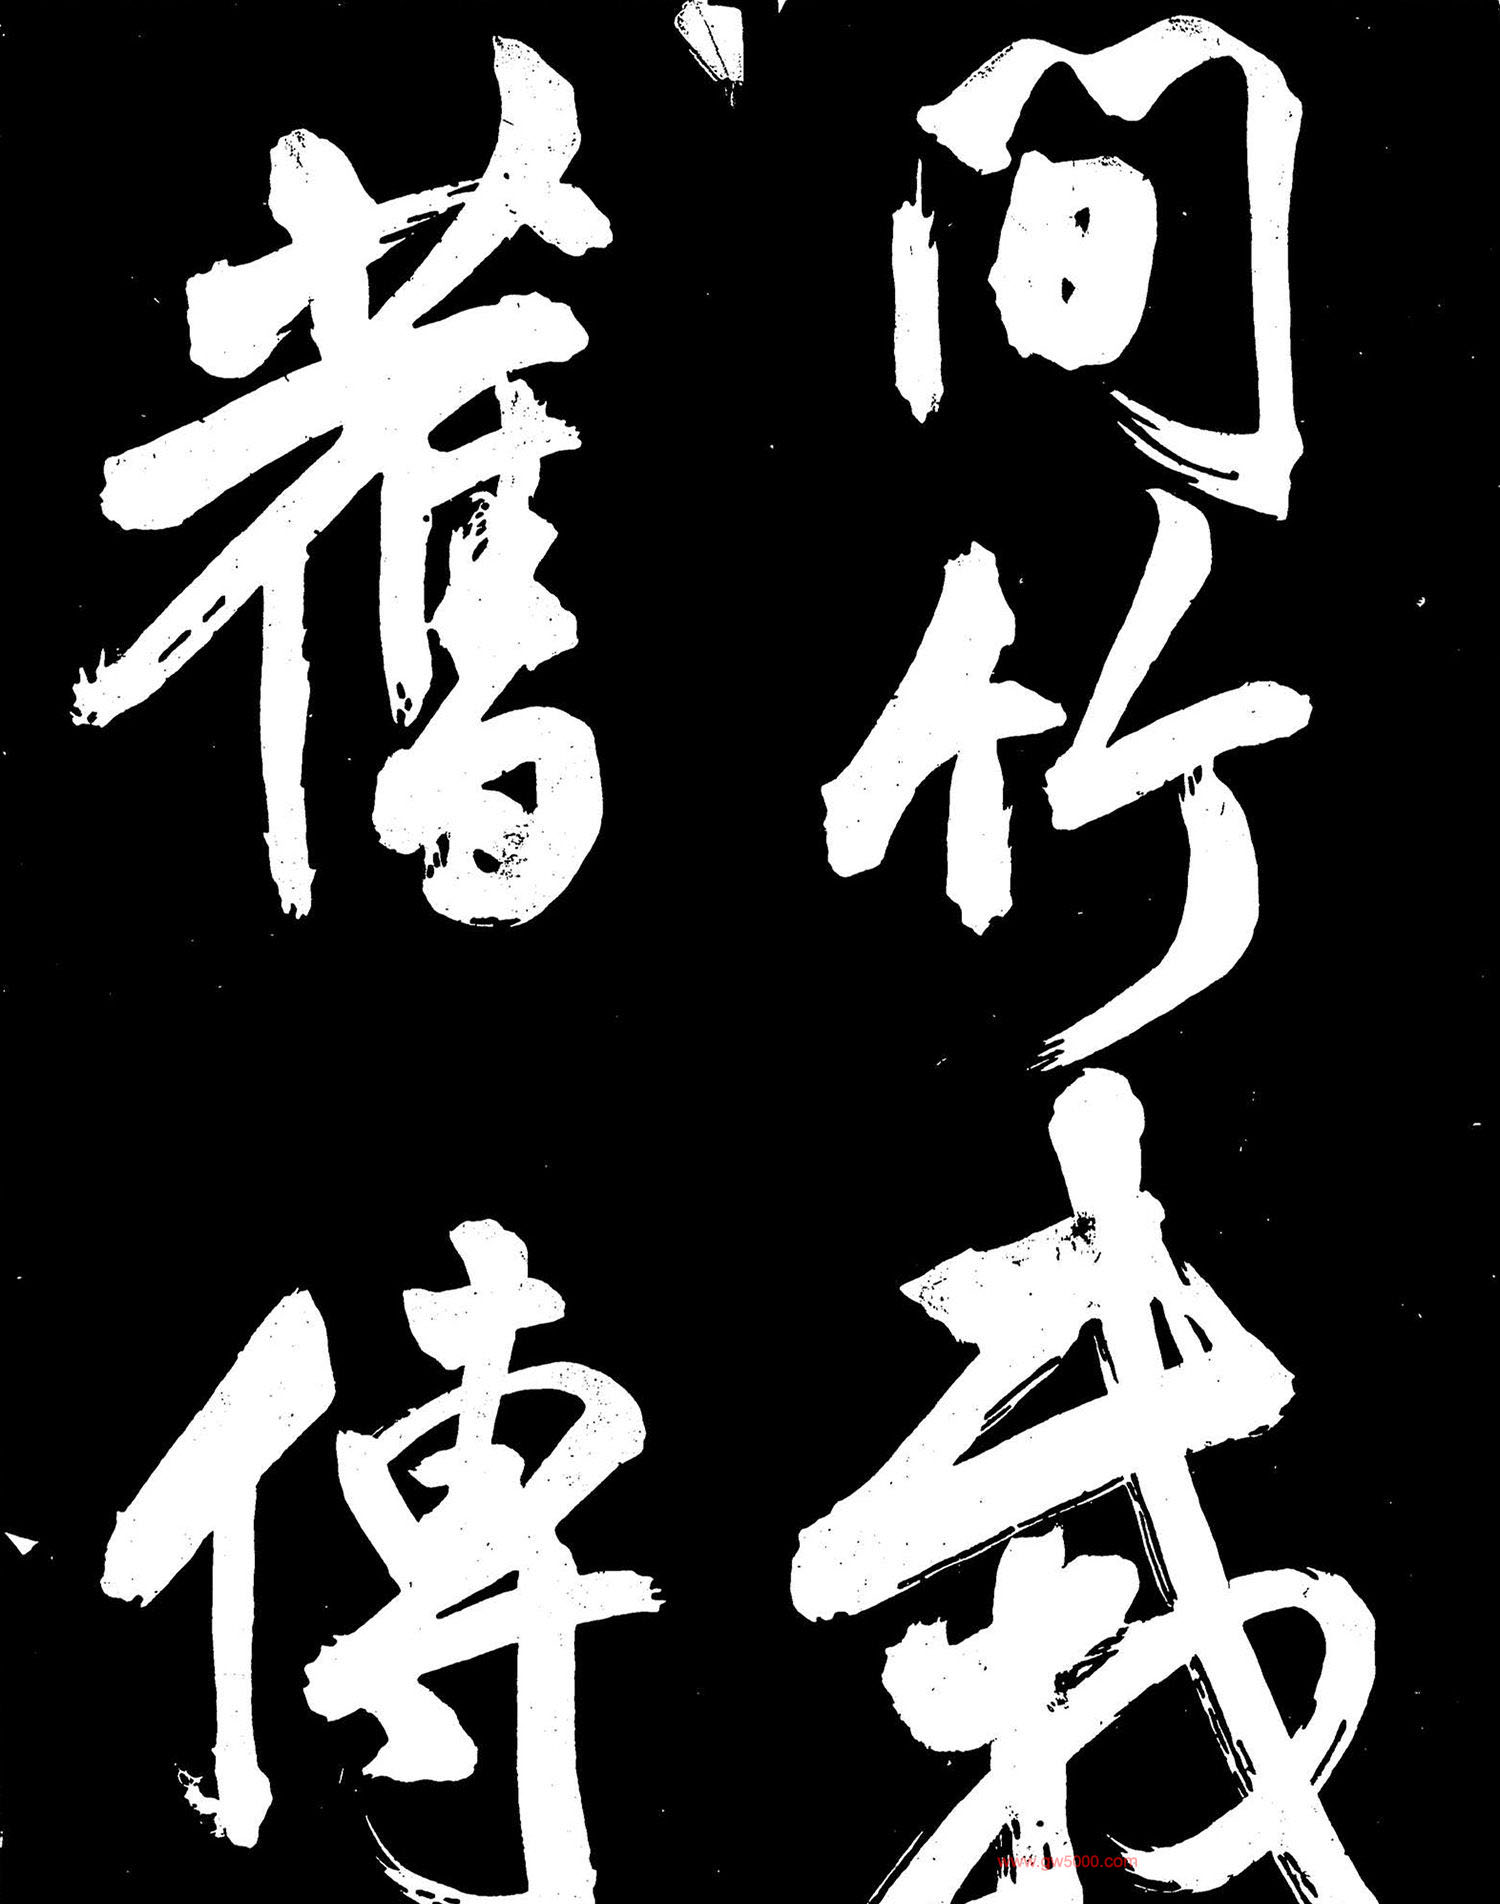 間竹栽
舊傳
www.gw5000.com